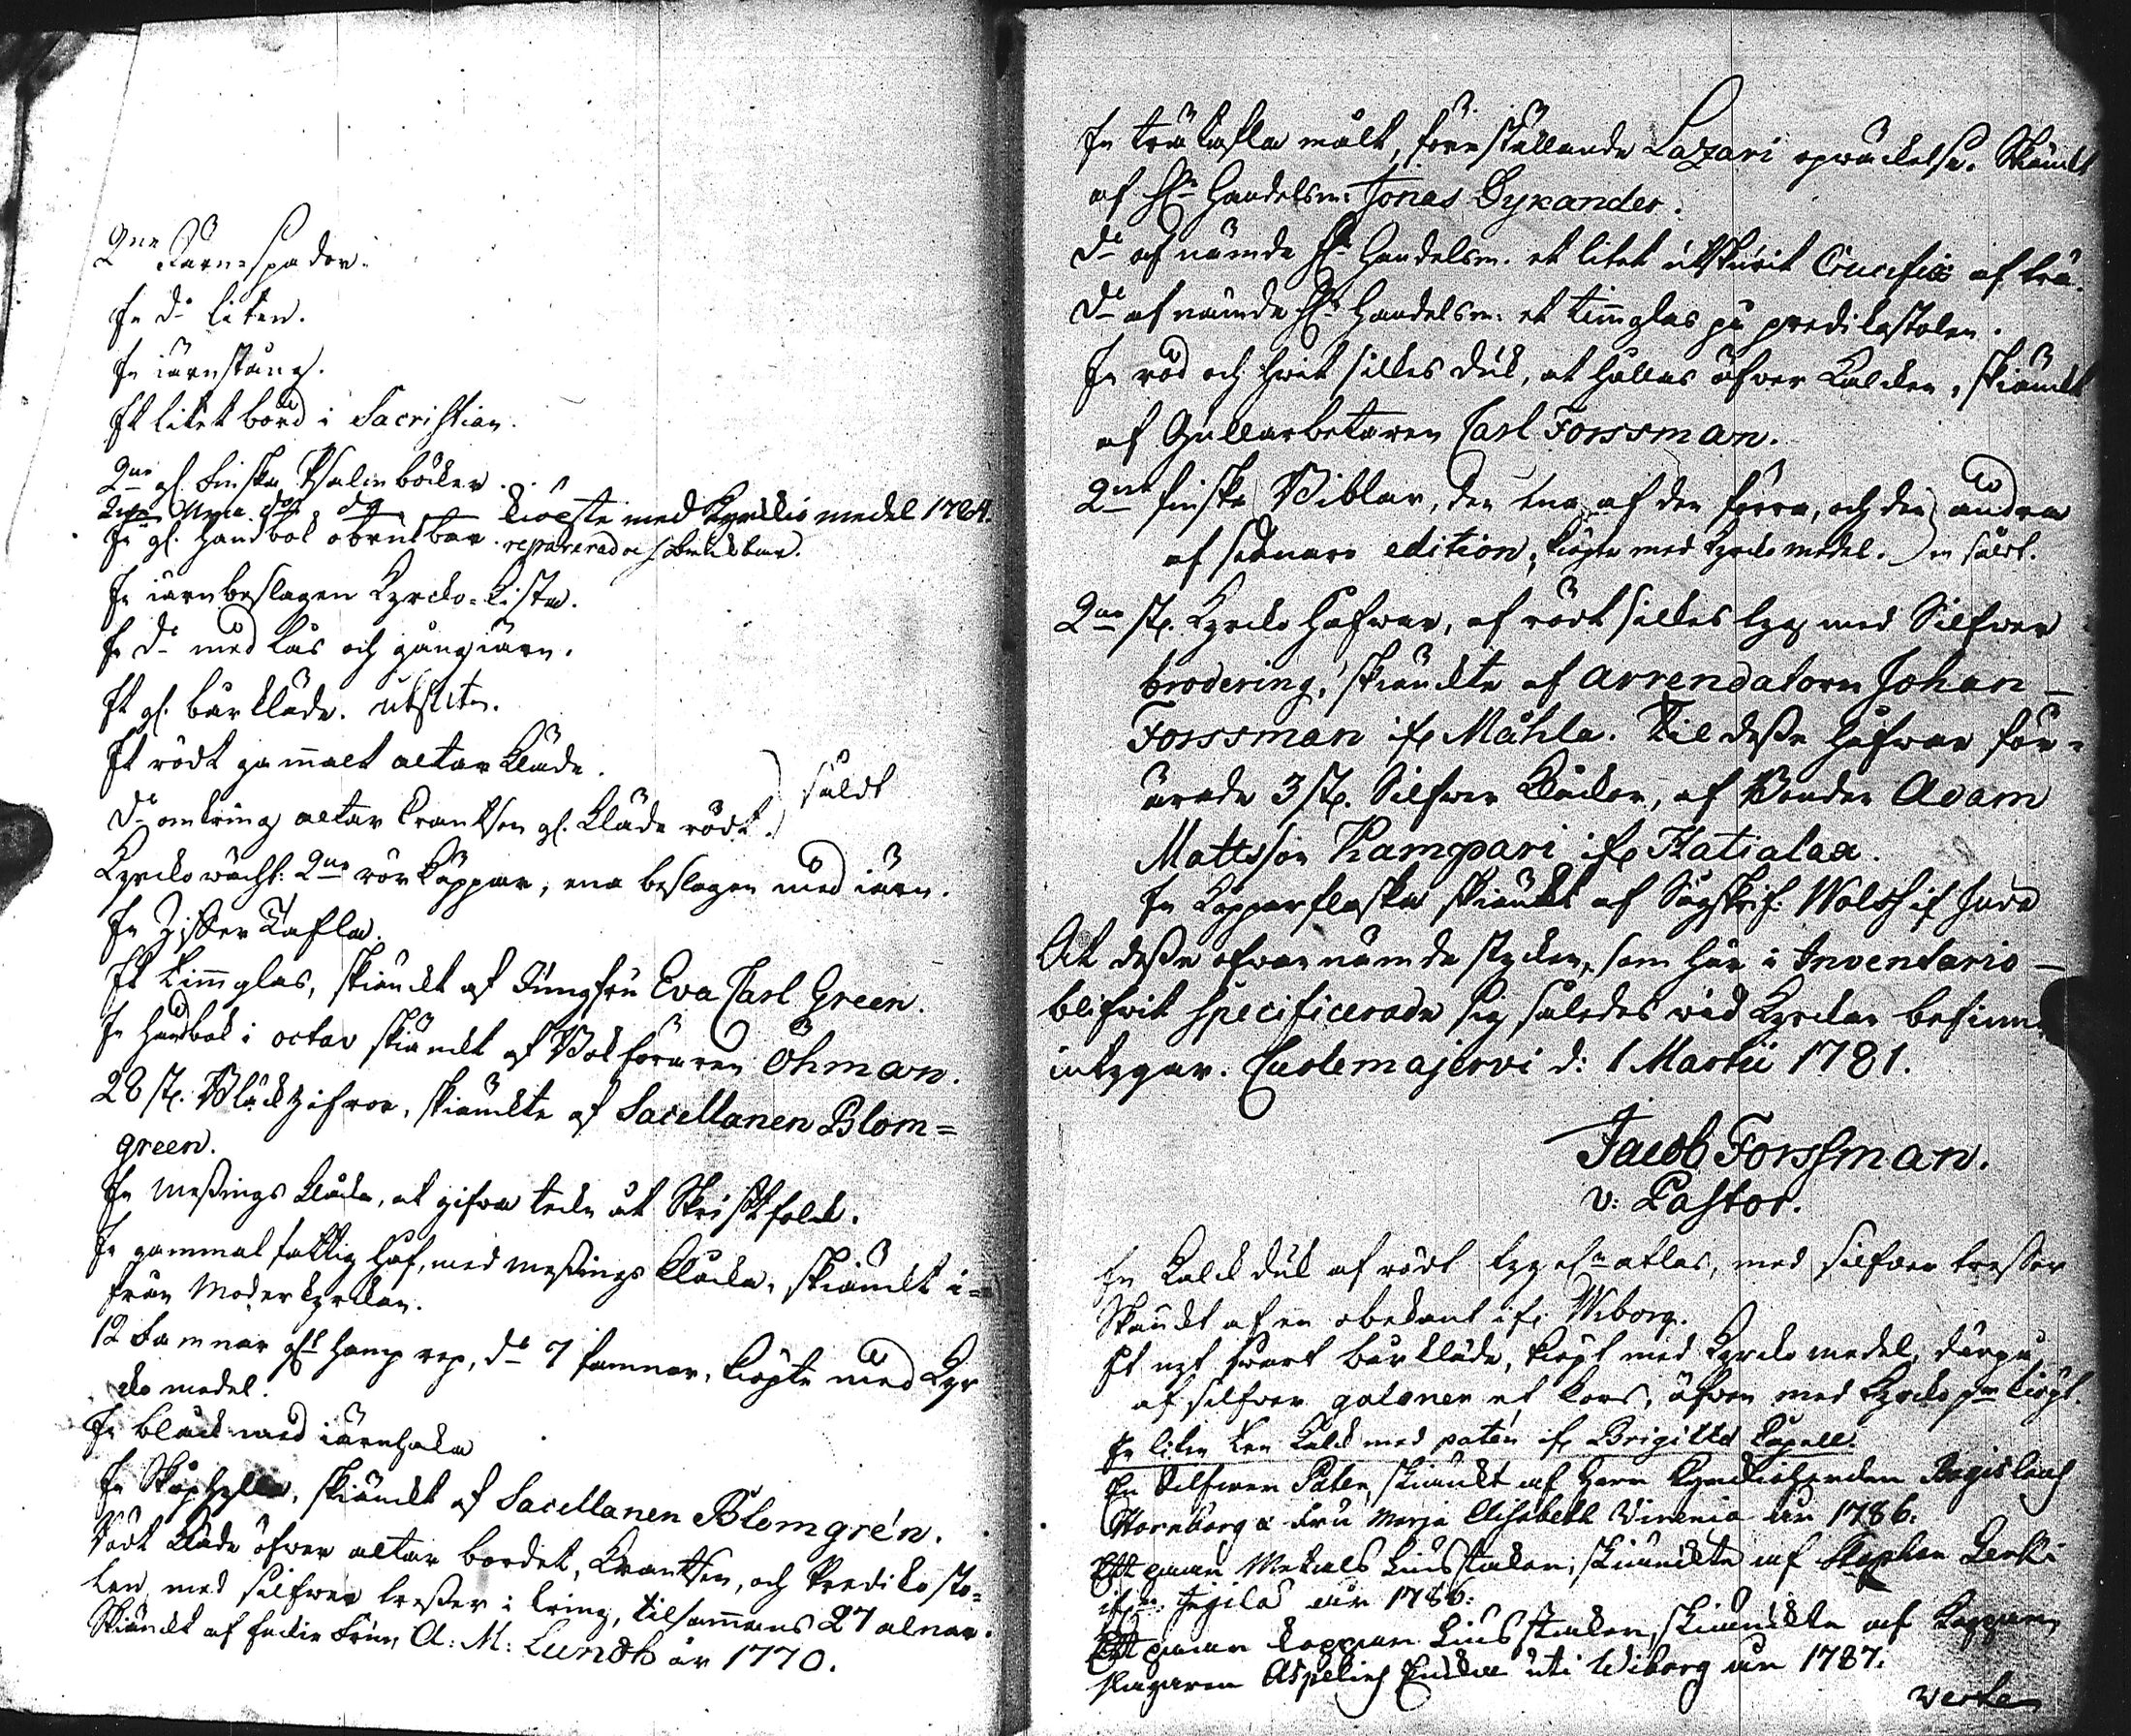 2ne Järn-spador.
En do liten.
En järnstång.
Et litet bord i Sacristian.
2ne gl. Finska Psalmböcker
2ne Nya do do kiöpte med Kyrckio medel 1784.
En gl. Handbok obrukbar. reparerad
En iärnbeslagen Kyrcko-kista.
En do med lås och gångiärn.
Et gl. bårkläde. utslitn.
Et rödt gammalt altarkläde.
do omkring altar krantsen gl. kläde rödt. såldt
Kyrcko wächt: 2ne rörkäppar, ena beslagen med iärn.
En Ziffer Tafla.
Et timglas, skiänckt af Jungfru Eva Carl Green.
En handbok i octav skiänckt af Bokföraren Öhman.
28 st. Bläckzifror, skiänckte af Sacellanen Blom=
green.
En Messings klåcka, at gifwa tecken åt Skriftfolck.
En gammal fattig håf, med messings klåcka, skiänckt i=
från Moderkyrckan.
12 famnar glt hamp rep, do 7 famnar, köpte med Kyr
cko medel.
En bläck med iärnhaka
En Skåphylla, skiänckt af Sacellanen Blomgrén.
Rödt kläde öfwer altar bordet, Krantsen, och Prediko sto=
len med silfwer tresser i kring, tilsammans 27 alnar.
Skiänckt af Fru A: M: Lundh år 1770.
En trätafla målt, föreställande Lazari opwäckelse. Skänckt
af Hr Handelsm: Jonas Dykander.
do af nämde Hr Handelsm. et litet utskurit Crucifix af trä.
do af nämde Hr Handelsm: et timglas på predikostolen.
En röd och hwit silkes duk, at hållas öfwer Kalcken, skiänckt
af Gullarbetaren Carl Forssman.
2ne finska Biblar, den ena af den förra, och den andra
af senare edition, köpte med Kyrcko medel. en såld.
2ne st. Kyrcko Håfwar, af rödt silkes tyg med Silfwer
brodering, skiänckte af Arrendatorn Johan
Forssman ifr. Måhla. Til desse håfwar för=
ärade 3 st. Silfwer klåckor, af Bonden Adam
Mattsson Kampari ifr Hatialax.
En Kopparflaska skiänckt af Wolth if
At desse ofwannämnde stycken, som här i Inventario
blifwit specificerade sig således wid Kyrckan befinna
intygar. Cuolemajerwi d: 1 Martii 1781.
Jacob Forssman.
v: Pastor.
En Kalckduk af rödt tyg atlas, med silfwer tresser
Skänckt af en obekant ifr. Wiborg.
Et nytt swart bårkläde, köpt med Kyrcko medel, därpå
af silfwer galoner et kors, äfwen med Kyrcko pngr kiöpt.
En liten ten Kalck med patén ifr Brigittæ Capell.
En Silfwer Paten, skiänckt af Herr Kyrckioherden Regislaus
Stornborg & Fru Maria Elisabeth Virenia år 1786.
Ett paar Metals Liusstakar, skiänckte af Stephan Lenki
ifrn Ingila år 1786:
Ett paar koppar Liusstakar, skiänckte af Koppar
slagaren Aspelins Encka uti Wiborg år 1787.
verte